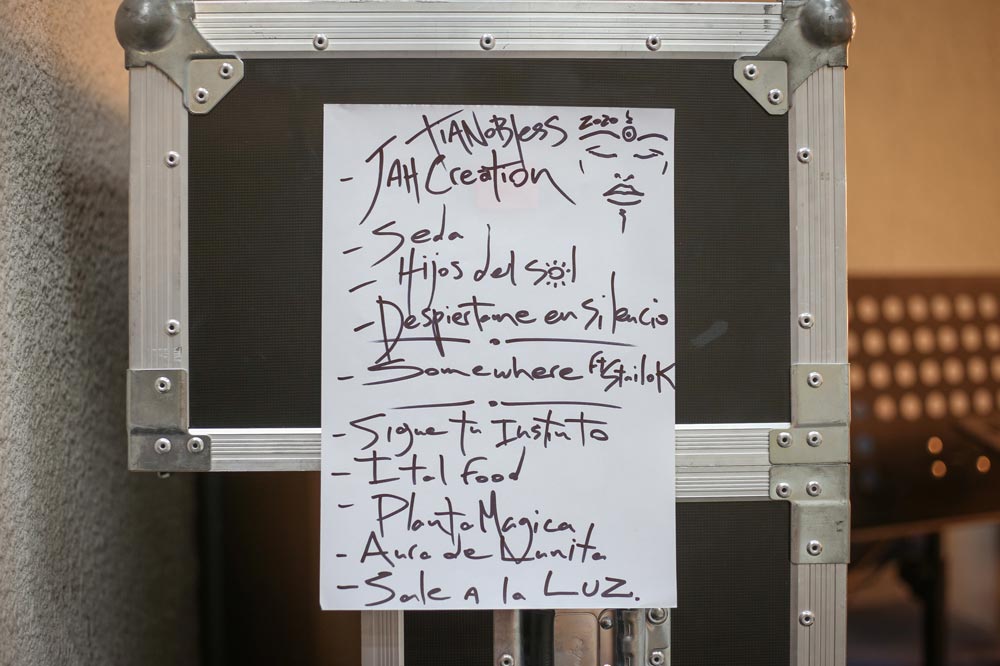 XIANobless 2020
- JAH Creation
- Seda
- Hijos del Sol
- Despiertame en Silencio
- Somewhere Ft StailoK
- Sigue tu Instinto
- Ital Food
- Planta Magica
- Aura de Lunita
- Sale A la LUZ.